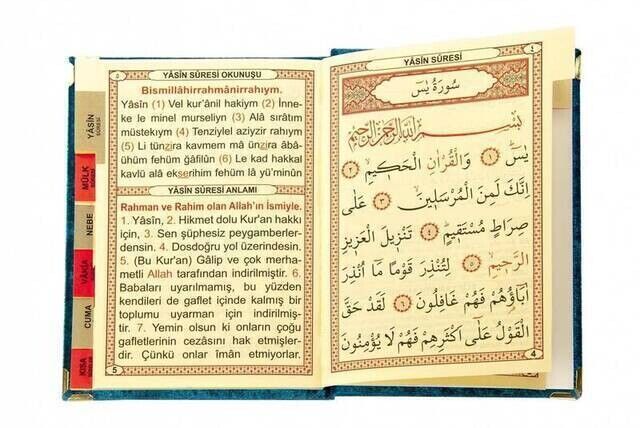 ٥
YÂSÎN SÛRESİ OKUNUŞU
Bismillâhirrahmânirrahıym.
Yâsîn (1) Vel kur'ânil hakiym (2) İnne-
ke le minel murseliyn (3) Alâ sırâtım
müstekıym (4) Tenziylel aziyzir rahıym
(5) Li tünzira kavmem mâ ünzira âbâ-
ühüm fehüm ğâfilûn (6) Le kad hakkal
kavlü alâ ekserihim fehüm lâ yü'minûn
YÂSÎN SÛRESİ ANLAMI
Rahman ve Rahim olan Allah'ın İsmiyle.
1. Yâsîn, 2. Hikmet dolu Kur'an hakkı
için, 3. Sen şüphesiz peygamberler-
densin. 4. Dosdoğru yol üzerindesin.
5. (Bu Kur'an) Gâlip ve çok merha-
metli Allah tarafından indirilmiştir. 6.
Babaları uyarılmamış, bu yüzden
kendileri de gaflet içinde kalmış bir
toplumu uyarman için indirilmiş-
tir. 7. Yemin olsun ki onların çoğu
gafletlerinin cezasını hak etmişler-
dir. Çünkü onlar îmân etmiyorlar.
5
YÂSİN
SÛRESİ
MÜLK
NEBE
VÂKIA
CUMA
KISA
٤
YÂSİN SÛRESİ
سُورَةُ يٰسٓ
بِسْمِ اللّٰهِ الرَّحْمٰنِ الرَّحِيمِ
يٰسٓ ١ وَالْقُرْاٰنِ الْحَكِيمِ ٢
اِنَّكَ لَمِنَ الْمُرْسَلِينَ ٣ عَلٰى
صِرَاطٍ مُسْتَقِيمٍ ٤ تَنْزِيلَ الْعَزِيزِ
الرَّحِيمِ ٥ لِتُنْذِرَ قَوْمًا مَٓا اُنْذِرَ
اٰبَٓاؤُهُمْ فَهُمْ غَافِلُونَ ٦ لَقَدْ حَقَّ
الْقَوْلُ عَلٰٓى اَكْثَرِهِمْ فَهُمْ لَا يُؤْمِنُونَ
4